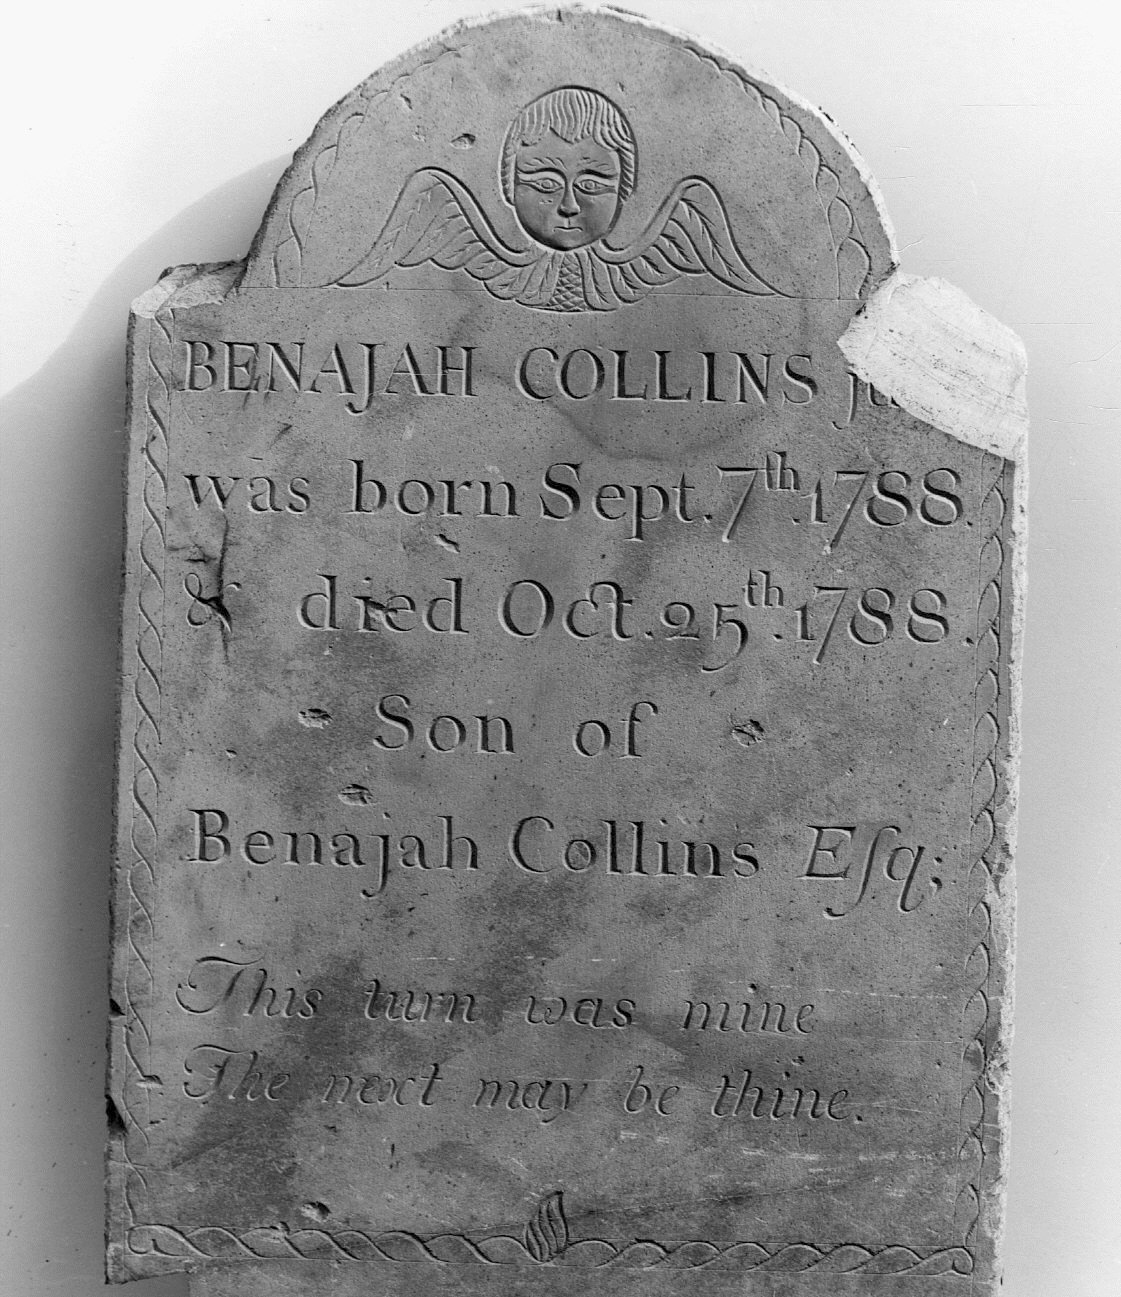 BENAJAH COLLINS ju
was born Sept. 7th. 1788.
& died Oct. 25th. 1788.
Son of
Benajah Collins Eſq;
This turn was mine
The next may be thine.